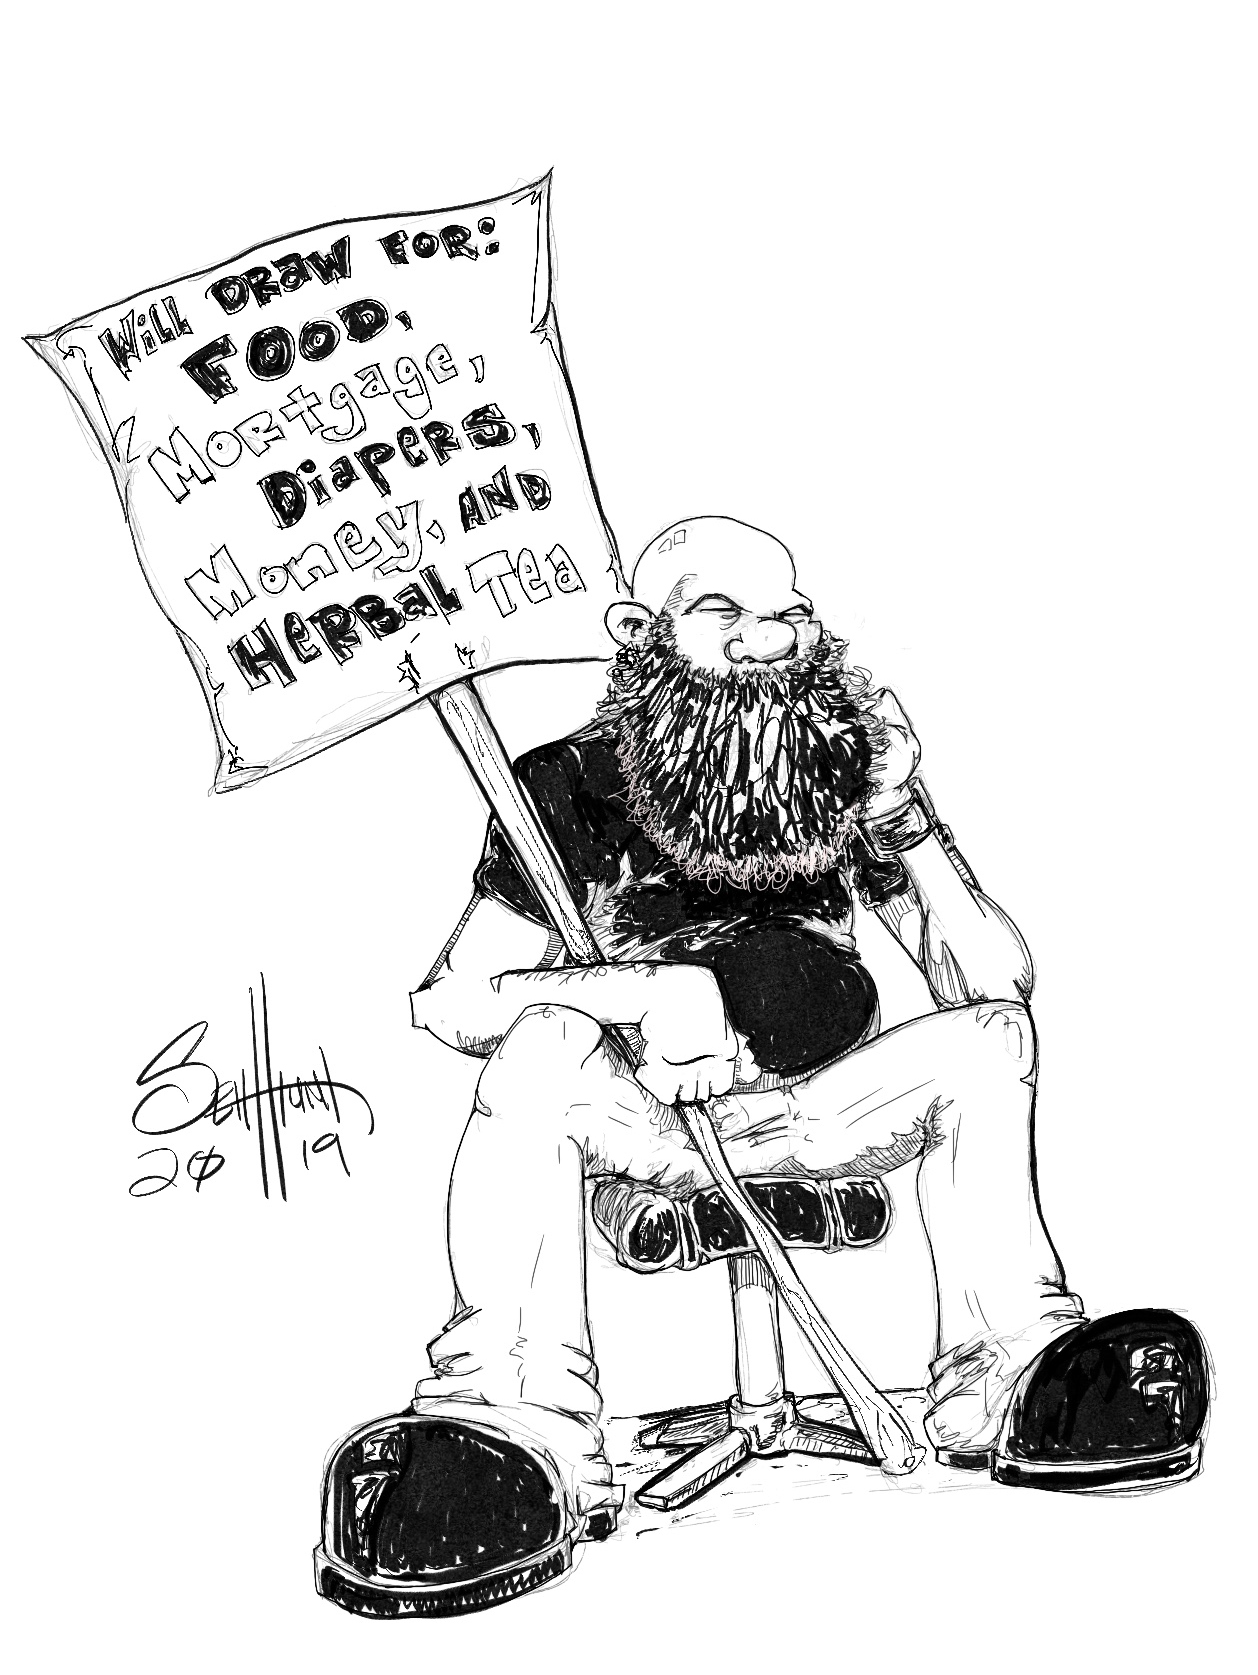 Will Draw for:
FOOD,
Mortgage,
Diapers,
Money, AND
Herbal Tea
2019